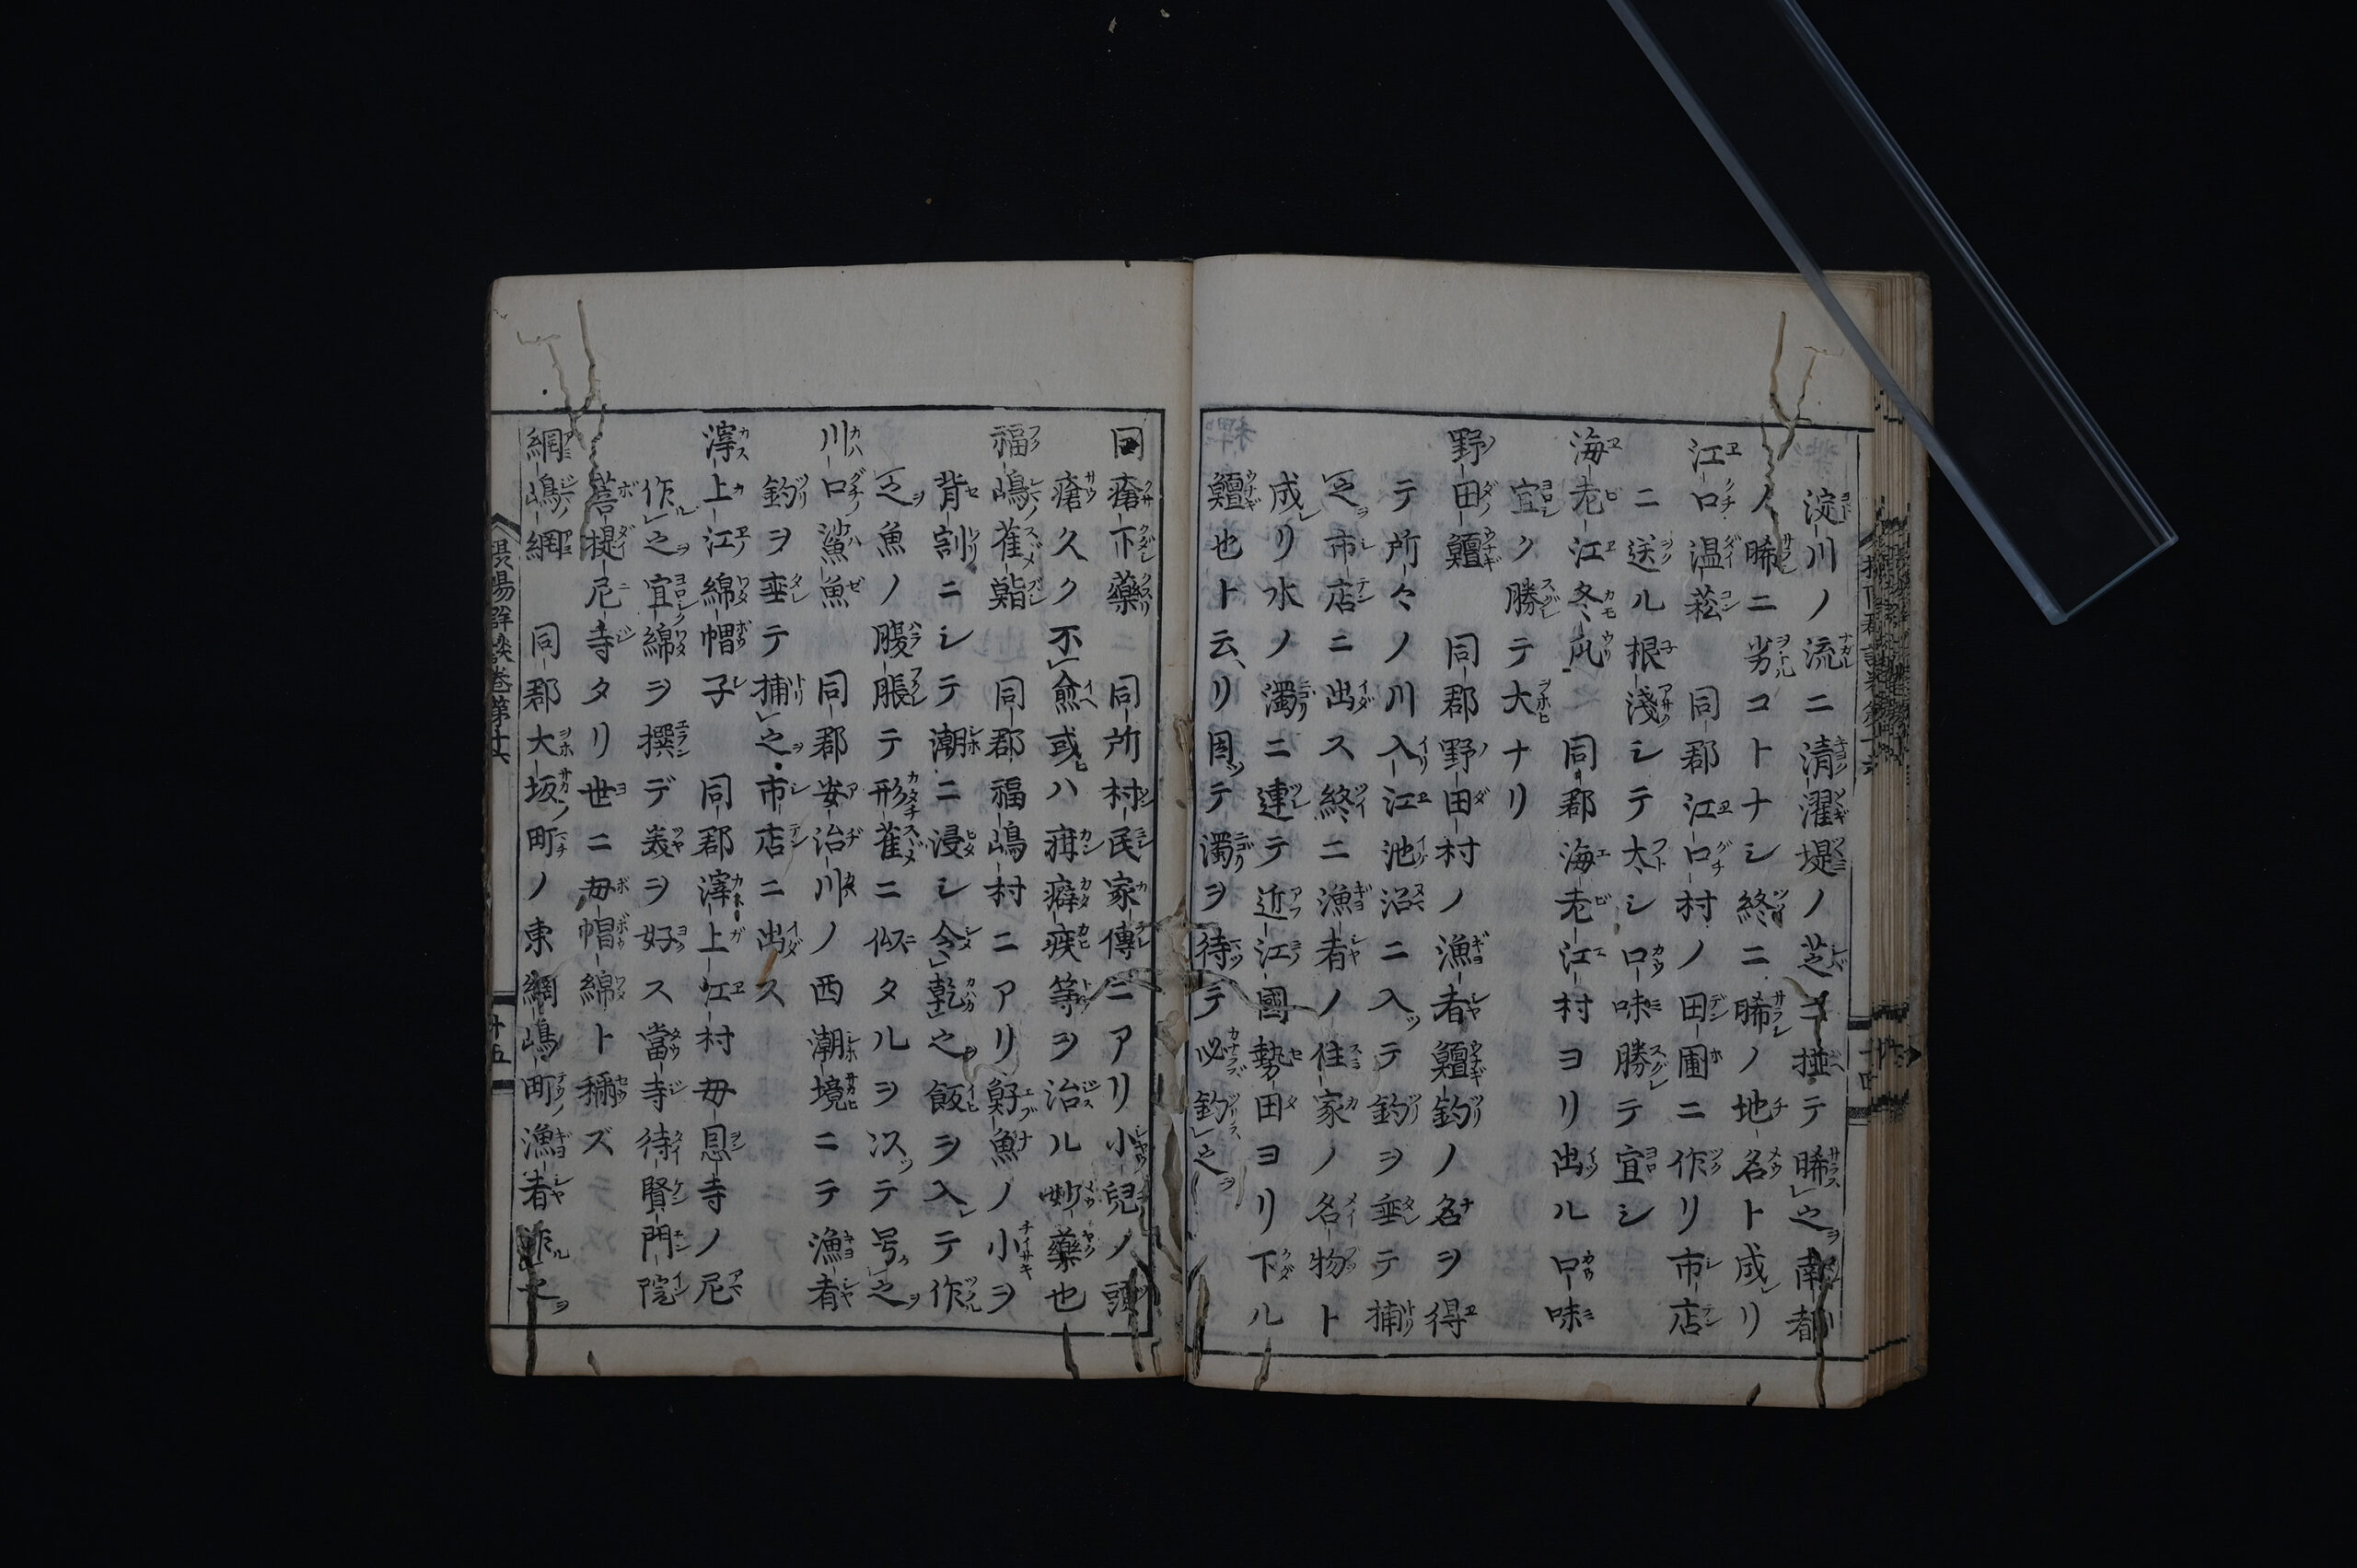 淀川ノ流ニ清濯堤ノ芝ニ掽テ晞之南都
ノ晞ニ劣コトナシ終ニ晞ノ地名ト成リ
江口温菘 同郡江口村ノ田圃ニ作リ市店
ニ送ル根淺シテ太シ口味勝テ宜シ
海老江冬瓜 同郡海老江村ヨリ出ル口味
宜ク勝テ大ナリ
野田鱣 同郡野田村ノ漁者鱣釣ノ名ヲ得
テ所々ノ川入江池沼ニ入テ釣ヲ垂テ捕
之市店ニ出ス終ニ漁者ノ住家ノ名物ト
成リ水ノ濁ニ連テ近江國勢田ヨリ下ル
鱣也ト云リ因テ濁ヲ待テ必釣之
同瘡下藥 同所村民家傳ニアリ小兒ノ頭
瘡久ク不愈或ハ疳癖疾等ヲ治ル妙藥也
福嶋雀鮨 同郡福嶋村ニアリ鯽魚ノ小ヲ
背割ニシテ潮ニ浸シ令乾之飯ヲ入テ作
之魚ノ腹脹テ形雀ニ似タルヲ以テ号之
川口鯊魚 同郡安治川ノ西潮境ニテ漁者
釣ヲ垂テ捕之市店ニ出ス
滓上江綿帽子 同郡滓上江村母恩寺ノ尼
作之宜綿ヲ撰デ美ヲ好ス當寺待賢門院
菩提尼寺タリ世ニ母帽綿ト稱ズ
網嶋網 同郡大坂町ノ東網嶋町漁者作之
攝陽群談巻第十六
十五